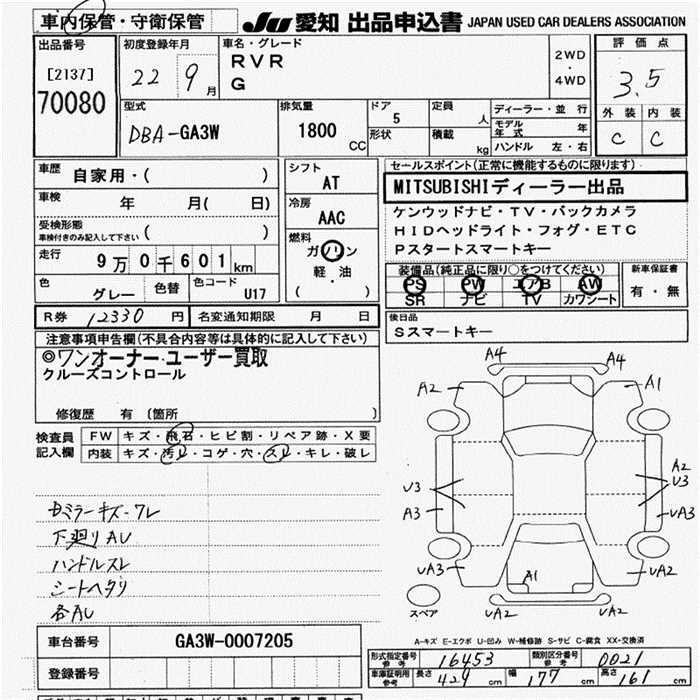 車内保管・守衛保管 JU 愛知 出品申込書 JAPAN USED CAR DEALERS ASSOCIATION
出品番号
[2137]
70080
初度登録年月
22 9月
車名・グレード
RVR
G
2WD
・
4WD
評価点
3.5
外装 内装
C C
型式
DBA-GA3W
排気量
1800
CC
ドア
5
形状
定員
人
積載
kg
ディーラー・並行
モデル年式 年
ハンドル 左・右
車歴
自家用・( )
車検 年 月( 日)
受検形態
車検付きのみ記入して下さい ( )
走行 9万0千601km
色 グレー 色替 色コード U17
シフト
AT
冷房
AAC
燃料
ガソリン
軽・油
( )
セールスポイント(正常に機能するものに限ります)
MITSUBISHIディーラー出品
ケンウッドナビ・TV・バックカメラ
HIDヘッドライト・フォグ・ETC
Pスタートスマートキー
装備品(純正品に限り○をつけてください)
PS PW エアB AW
SR ナビ TV カワシート
新車保証書
有・無
R券 12330 円 名変通知期限 月 日
後日品
Sスマートキー
注意事項申告欄(不具合内容等は具体的に記入して下さい)
◎ワンオーナー・ユーザー買取
クルーズコントロール
修復歴 有 〔箇所 〕
検査員
記入欄
FW キズ・飛石・ヒビ割・リペア跡・X要
内装 キズ・汚レ・コゲ・穴・スレ・キレ・破レ
下廻りAU
ハンドルスレ
シートヘタリ
各AU
A4 A4
A2 A1
U3
A3
A2
U3
UA3
UA3
A1
UA2
スペア
UA2 UA2
A-キズ E-エクボ U-凹み W-補修跡 S-サビ C-腐食 XX-交換済
車台番号 GA3W-0007205
登録番号
形式指定番号 参考 16453 類別区分番号 参考 0021
車庫証明用 参考 長さ 429 cm 幅 177 cm 高さ 161 cm